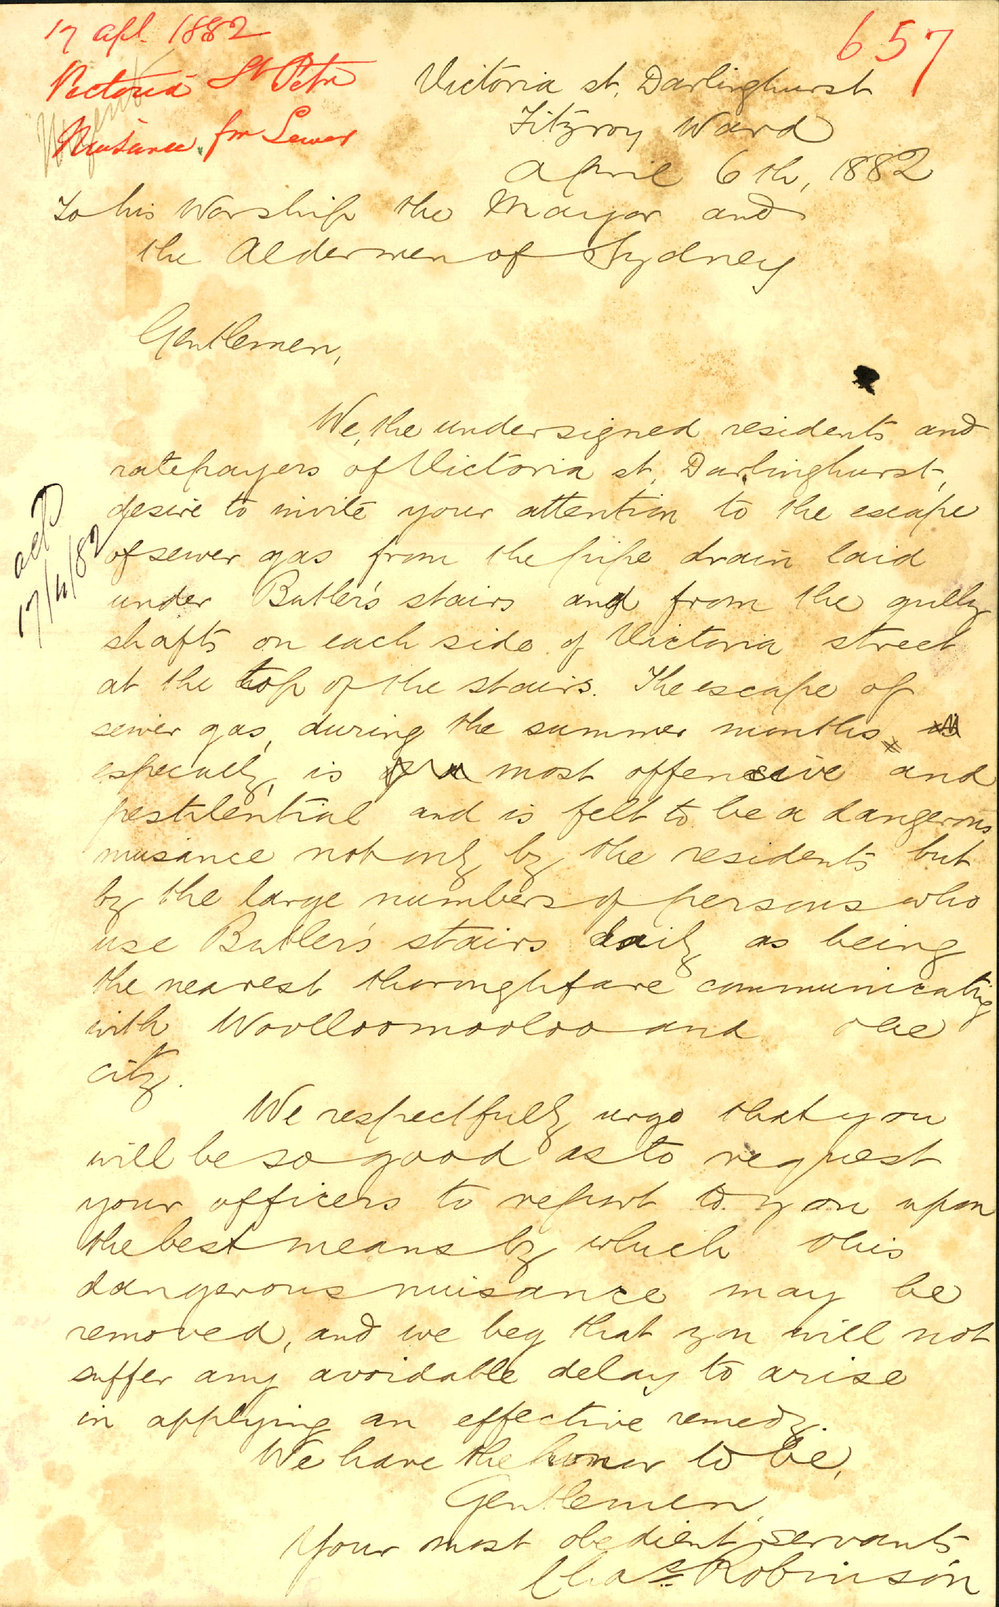 17 Apl. 1882
Victoria St Petn
Nuisance from Sewer
657
Victoria st. Darlinghurst
Fitzroy Ward
April 6th, 1882
To his Worship the Mayor and
the Aldermen of Sydney
Gentlemen,
We, the undersigned residents and
ratepayers of Victoria st, Darlinghurst,
desire to invite your attention to the escape
of sewer gas from the pipe drain laid
under Butler's stairs and from the gully
shafts on each side of Victoria street
at the top of the stairs. The escape of
sewer gas, during the summer months
especially, is most offensive and
pestilential and is felt to be a dangerous
nuisance not only by the residents but
by the large numbers of persons who
use Butler's stairs daily as being
the nearest thoroughfare communicating
with Woolloomooloo and the
city.
We respectfully urge that you
will be so good as to request
your officers to report to you upon
the best means by which this
dangerous nuisance may be
removed, and we beg that you will not
suffer any avoidable delay to arise
in applying an effective remedy.
We have the honor to be,
Gentlemen,
Your most obedient servants
Chas. Robinson
17/4/82